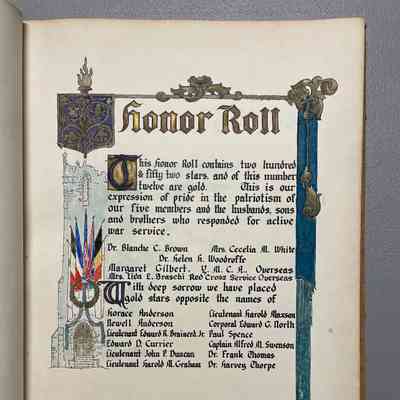 Honor Roll
This Honor Roll contains two hundred
& fifty two stars, and of this number
twelve are gold. This is our
expression of pride in the patriotism of
our five members and the husbands, sons
and brothers who responded for active
war service.
Dr. Blanche C. Brown Mrs. Cecelia M. White
Dr. Helen H. Woodroffe
Margaret Gilbert, Y. M. C. A., Overseas
Mrs. Lida E. Braschi Red Cross Service Overseas
With deep sorrow we have placed
gold stars opposite the names of
Horace Anderson Lieutenant Harold Maxson
Newell Anderson Corporal Edward G. North
Lieutenant Edward R. Brainerd, Jr. Paul Spence
Edward D. Currier Captain Alfred M. Swenson
Lieutenant John P. Duncan Dr. Frank Thomas
Lieutenant Harold M. Graham Dr. Harvey Thorpe